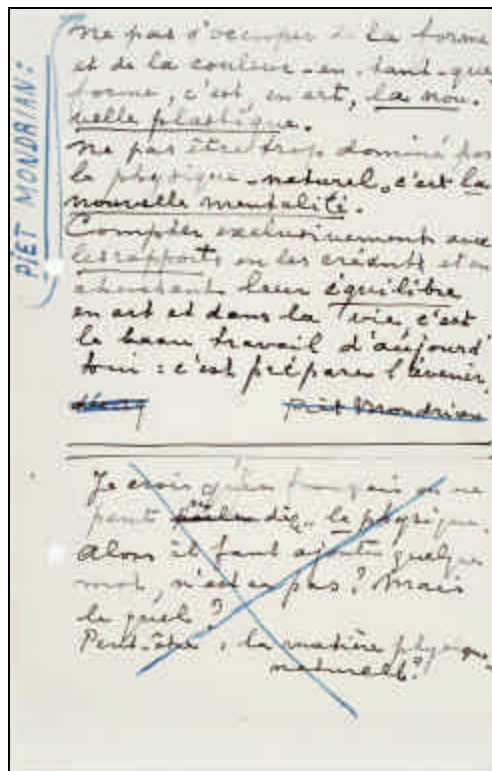 PIET MONDRIAN:
ne pas s'occuper de la forme
et de la couleur-en-tant-que
forme, c'est, en art, la nou-
velle plastique.
ne pas être trop dominé par
le physique-naturel, c'est la
nouvelle mentalité.
Compter exclusivement avec
les rapports en les créant et en
cherchant leur équilibre
en art et dans la vie, c'est
le beau travail d'aujourd'
hui : c'est préparer l'avenir.
Piet Mondrian
Je crois qu'en français on ne
peut dire le physique.
Alors il faut ajouter quelque
mot, n'est ce pas? Mais
le quel?
Peut-être : la matière physique-
naturelle?